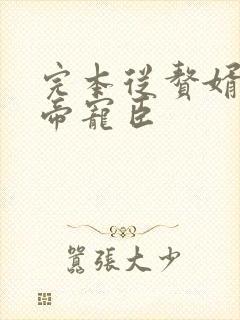 完本從贅婿
帝寵臣
囂張大少